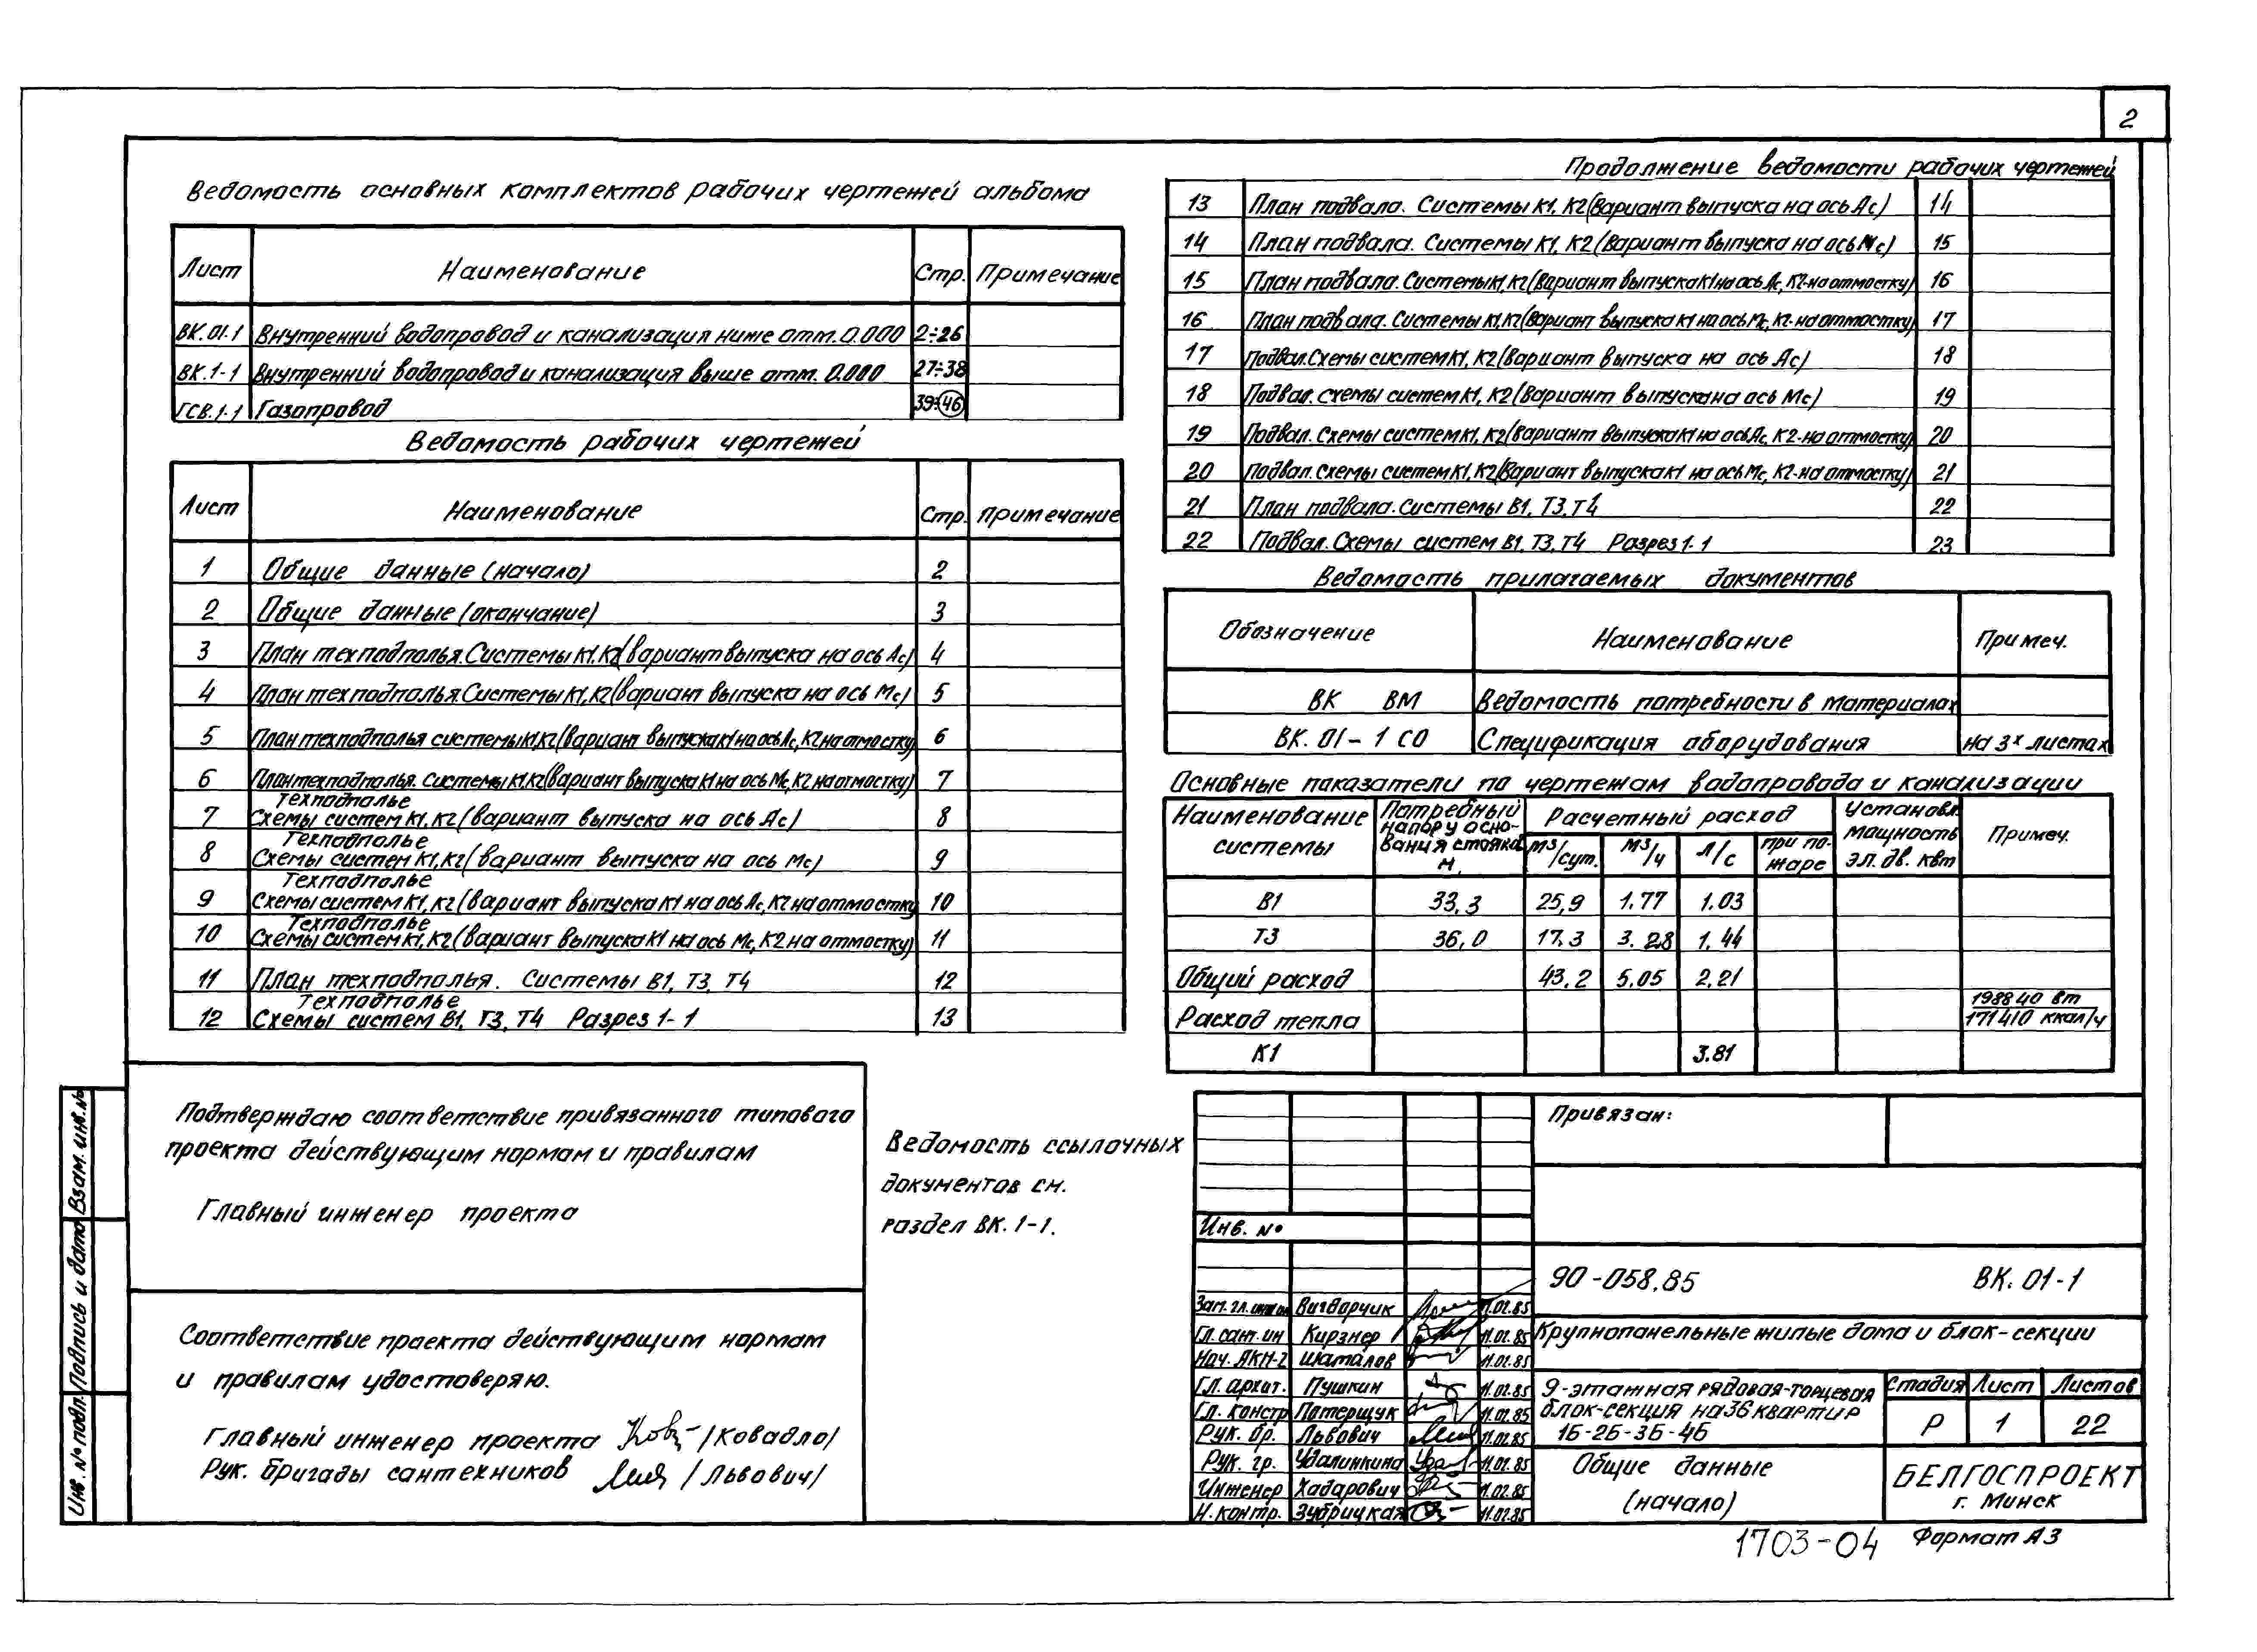 2
Ведомость основных комплектов рабочих чертежей альбома
Лист Наименование Стр. Примечание
ВК.01-1 Внутренний водопровод и канализация ниже отм. 0.000 2÷26
ВК.1-1 Внутренний водопровод и канализация выше отм. 0.000 27÷38
ГСВ.1-1 Газопровод 39÷46
Ведомость рабочих чертежей
Лист Наименование Стр. Примечание
1 Общие данные (начало) 2
2 Общие данные (окончание) 3
3 План техподполья. Системы К1, К2 (вариант выпуска на ось Ас) 4
4 План техподполья. Системы К1, К2 (вариант выпуска на ось Мс) 5
5 План техподполья системы К1, К2 (вариант выпуска К1 на ось Ас, К2 на отмостку) 6
6 План техподполья. Системы К1, К2 (вариант выпуска К1 на ось Мс, К2 на отмостку) 7
Техподполье
7 Схемы систем К1, К2 (вариант выпуска на ось Ас) 8
Техподполье
8 Схемы систем К1, К2 (вариант выпуска на ось Мс) 9
Техподполье
9 Схемы систем К1, К2 (вариант выпуска К1 на ось Ас, К2 на отмостку 10
Техподполье
10 Схемы систем К1, К2 (вариант выпуска К1 на ось Мс, К2 на отмостку) 11
11 План техподполья. Системы В1, Т3, Т4 12
Техподполье
12 Схемы систем В1, Т3, Т4 Разрез 1-1 13
Продолжение ведомости рабочих чертежей
13 План подвала. Системы К1, К2 (Вариант выпуска на ось Ас) 14
14 План подвала. Системы К1, К2 (Вариант выпуска на ось Мс) 15
15 План подвала. Системы К1, К2 (Вариант выпуска К1 на ось Ас, К2-на отмостку) 16
16 План подвала. Системы К1, К2 (Вариант выпуска К1 на ось Мс, К2-на отмостку) 17
17 Подвал. Схемы систем К1, К2 (Вариант выпуска на ось Ас) 18
18 Подвал. Схемы систем К1, К2 (Вариант выпуска на ось Мс) 19
19 Подвал. Схемы систем К1, К2 (Вариант выпуска К1 на ось Ас, К2-на отмостку) 20
20 Подвал. Схемы систем К1, К2 (Вариант выпуска К1 на ось Мс, К2-на отмостку) 21
21 План подвала. Системы В1, Т3, Т4 22
22 Подвал. Схемы систем В1, Т3, Т4 Разрез 1-1 23
Ведомость прилагаемых документов
Обозначение Наименование Примеч.
ВК ВМ Ведомость потребности в материалах
ВК. 01-1 СО Спецификация оборудования на 3х листах
Основные показатели по чертежам водопровода и канализации
Наименование системы Потребный напор у осно-вания стояка м. Расчетный расход Установл. мощность эл. дв. квт Примеч.
м³/сут. м³/ч л/с при по-жаре
В1 33,3 25,9 1.77 1.03
Т3 36,0 17,3 3.28 1.44
Общий расход 43.2 5.05 2,21
Расход тепла 198840 вт
171410 ккал/ч
К1 3.81
Подтверждаю соответствие привязанного типового
проекта действующим нормам и правилам
Главный инженер проекта
Соответствие проекта действующим нормам
и правилам удостоверяю.
Главный инженер проекта /Ковадло/
Рук. бригады сантехников /Львович/
Ведомость ссылочных
документов см.
раздел ВК. 1-1.
Взам. инв. №
Подпись и дата
Инв. № подл.
Привязан:
Инв. №
90-058.85 ВК. 01-1
Зам. гл. Вигдорчик 11.02.85
Гл. сант. ин Кирзнер 11.02.85
Нач. АКМ-2 Шаталов 11.02.85
Гл. архит. Пушкин 11.02.85
Гл. констр Потерщук 11.02.85
Рук. бр. Львович 11.02.85
Рук. гр. Удалинкина 11.02.85
Инженер Хадарович 11.02.85
Н. контр. Зубрицкая 11.02.85
Крупнопанельные жилые дома и блок-секции
9-этажная рядовая-торцевая
блок-секция на 36 квартир
1Б-2Б-3Б-4Б
Стадия Лист Листов
Р 1 22
Общие данные
(начало)
БЕЛГОСПРОЕКТ
г. Минск
1703-04 Формат А3